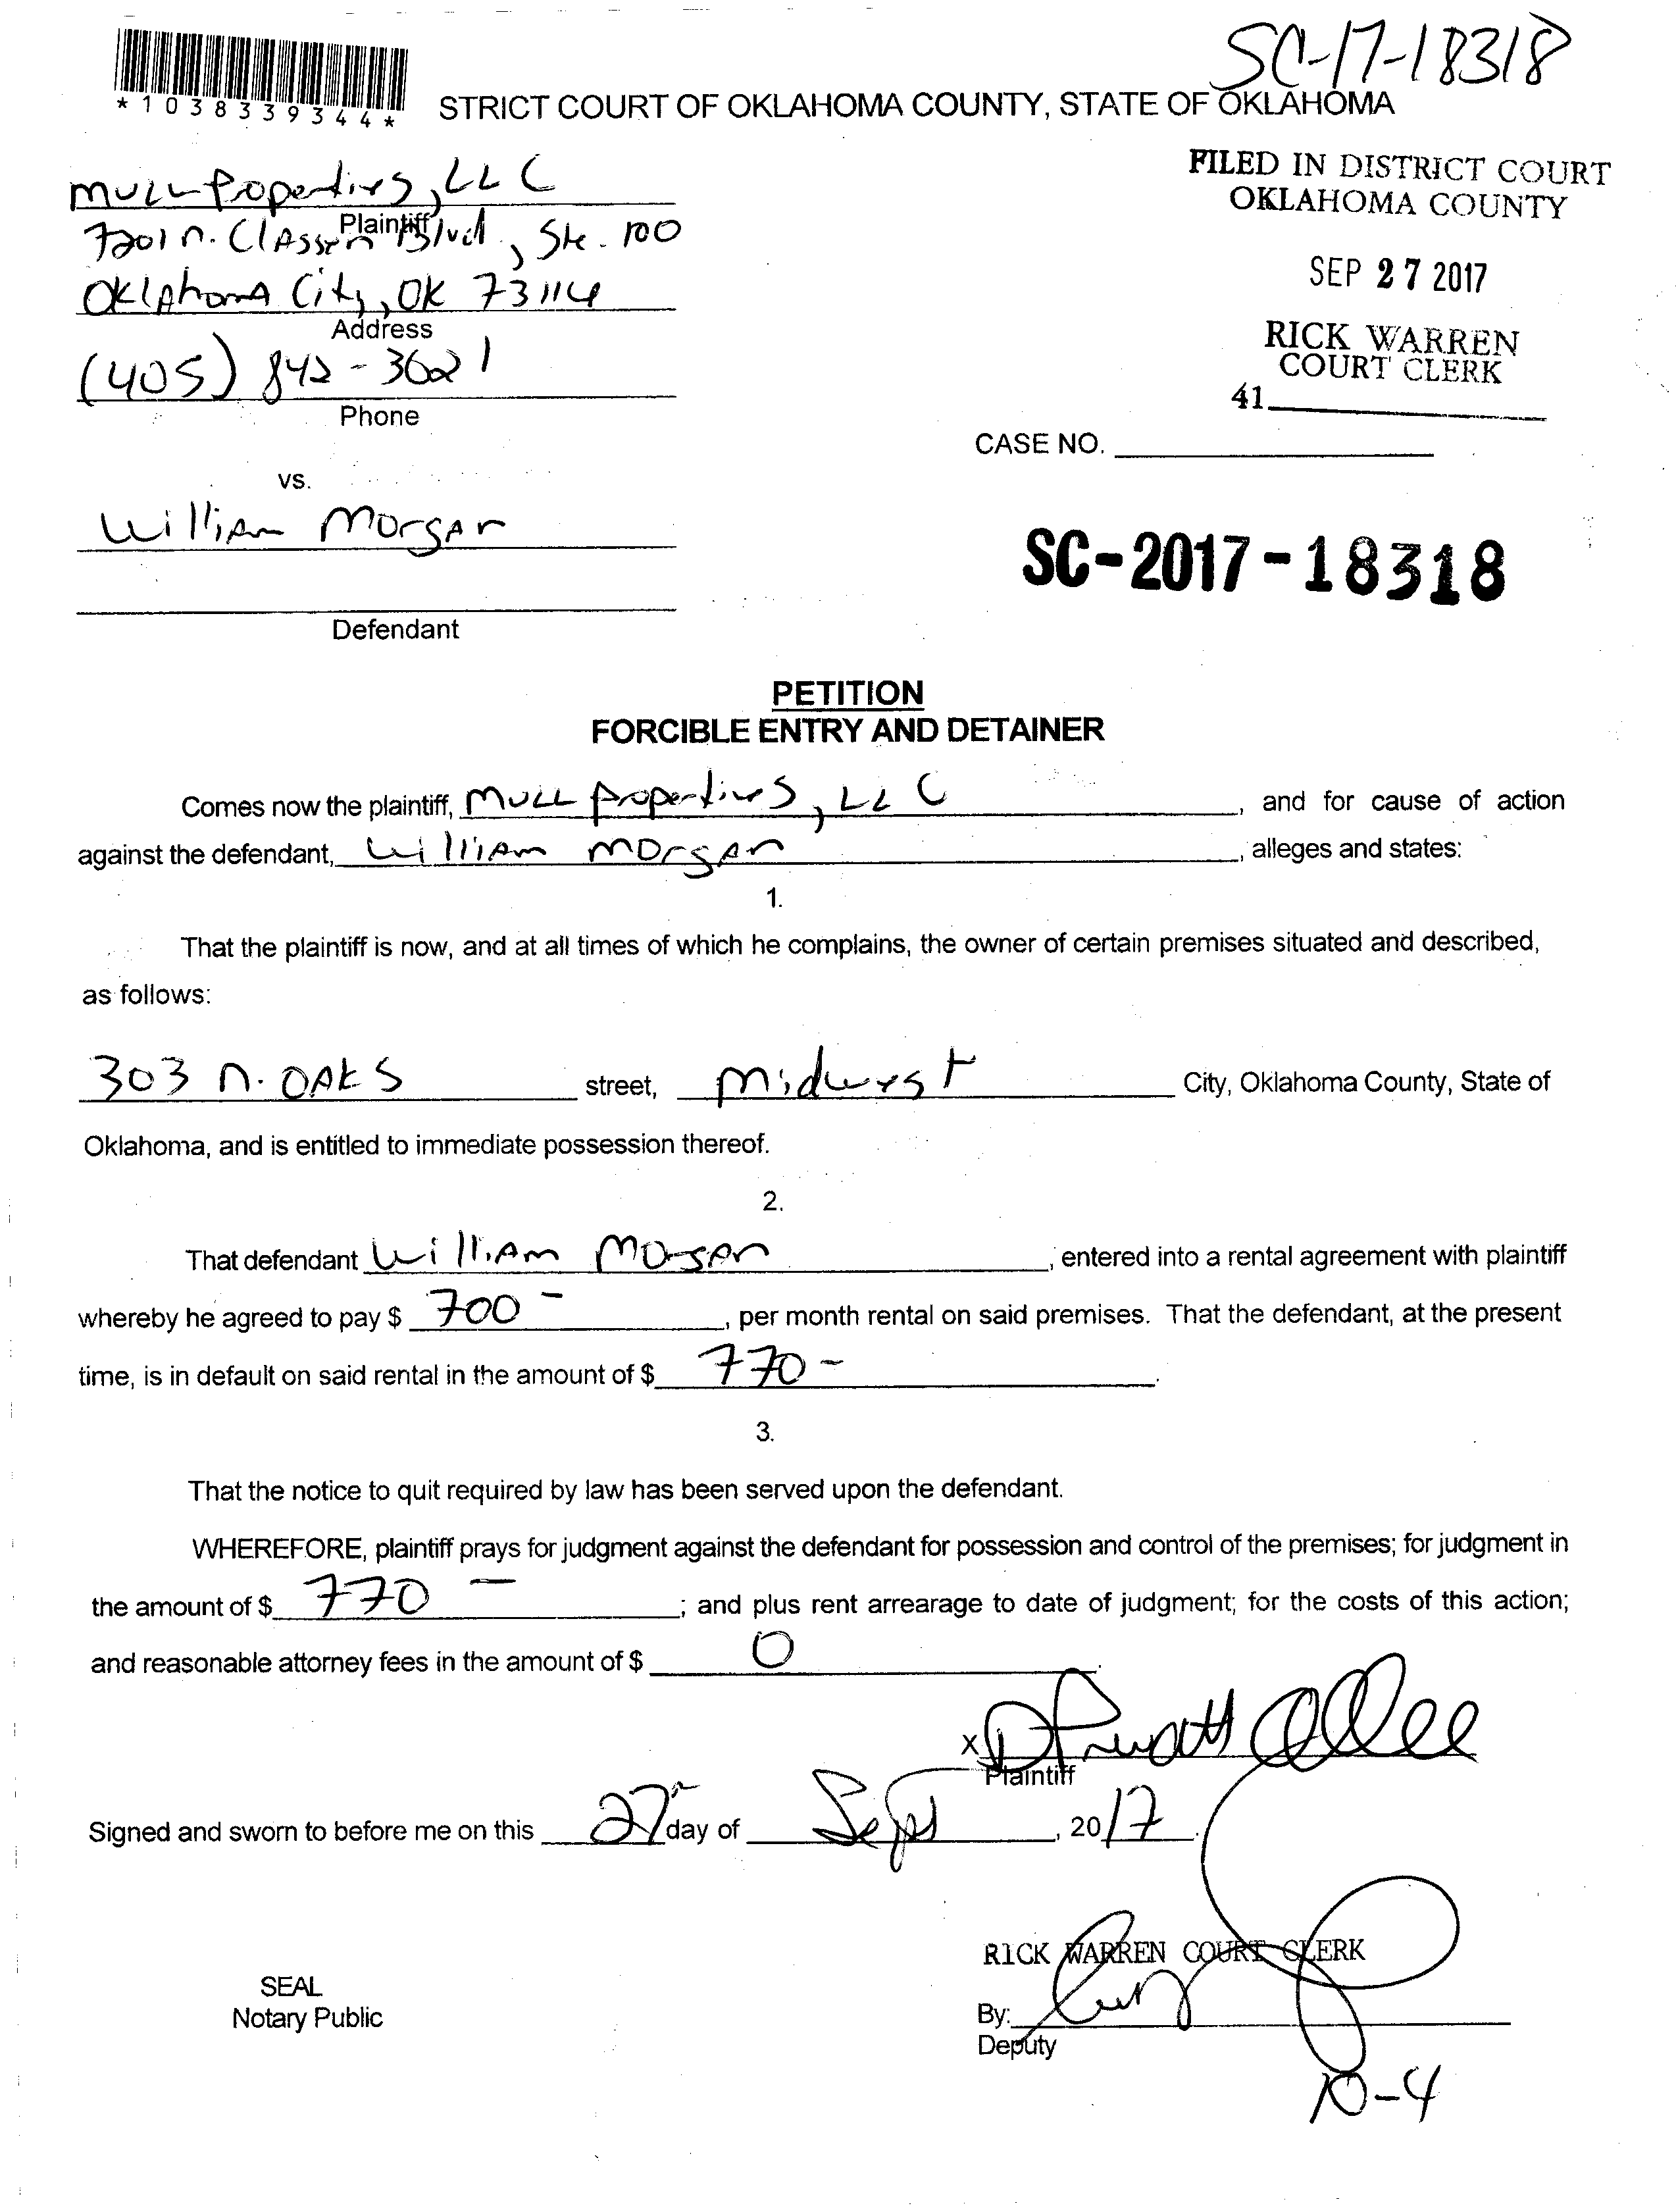 SC-17-18318
*1038339344*
STRICT COURT OF OKLAHOMA COUNTY, STATE OF OKLAHOMA
FILED IN DISTRICT COURT
OKLAHOMA COUNTY
SEP 27 2017
RICK WARREN
COURT CLERK
41
MULL Properties, LLC
Plaintiff
7201 N. Classen Blvd, Ste. 100
Oklahoma City, OK 73116
Address
(405) 842-3621
Phone
CASE NO.
vs.
William Morgan
SC-2017-18318
Defendant
PETITION
FORCIBLE ENTRY AND DETAINER
Comes now the plaintiff, MULL Properties, LLC, and for cause of action
against the defendant, William Morgan, alleges and states:
1.
That the plaintiff is now, and at all times of which he complains, the owner of certain premises situated and described,
as follows:
303 N. OAKS street, Midwest City, Oklahoma County, State of
Oklahoma, and is entitled to immediate possession thereof.
2.
That defendant William Morgan, entered into a rental agreement with plaintiff
whereby he agreed to pay $ 700 -, per month rental on said premises. That the defendant, at the present
time, is in default on said rental in the amount of $ 770 -.
3.
That the notice to quit required by law has been served upon the defendant.
WHEREFORE, plaintiff prays for judgment against the defendant for possession and control of the premises; for judgment in
the amount of $ 770 -; and plus rent arrearage to date of judgment; for the costs of this action;
and reasonable attorney fees in the amount of $ 0.
X
Plaintiff
Signed and sworn to before me on this 27th day of Sept, 2017.
RICK WARREN COURT CLERK
SEAL
Notary Public
By:
Deputy
10-4